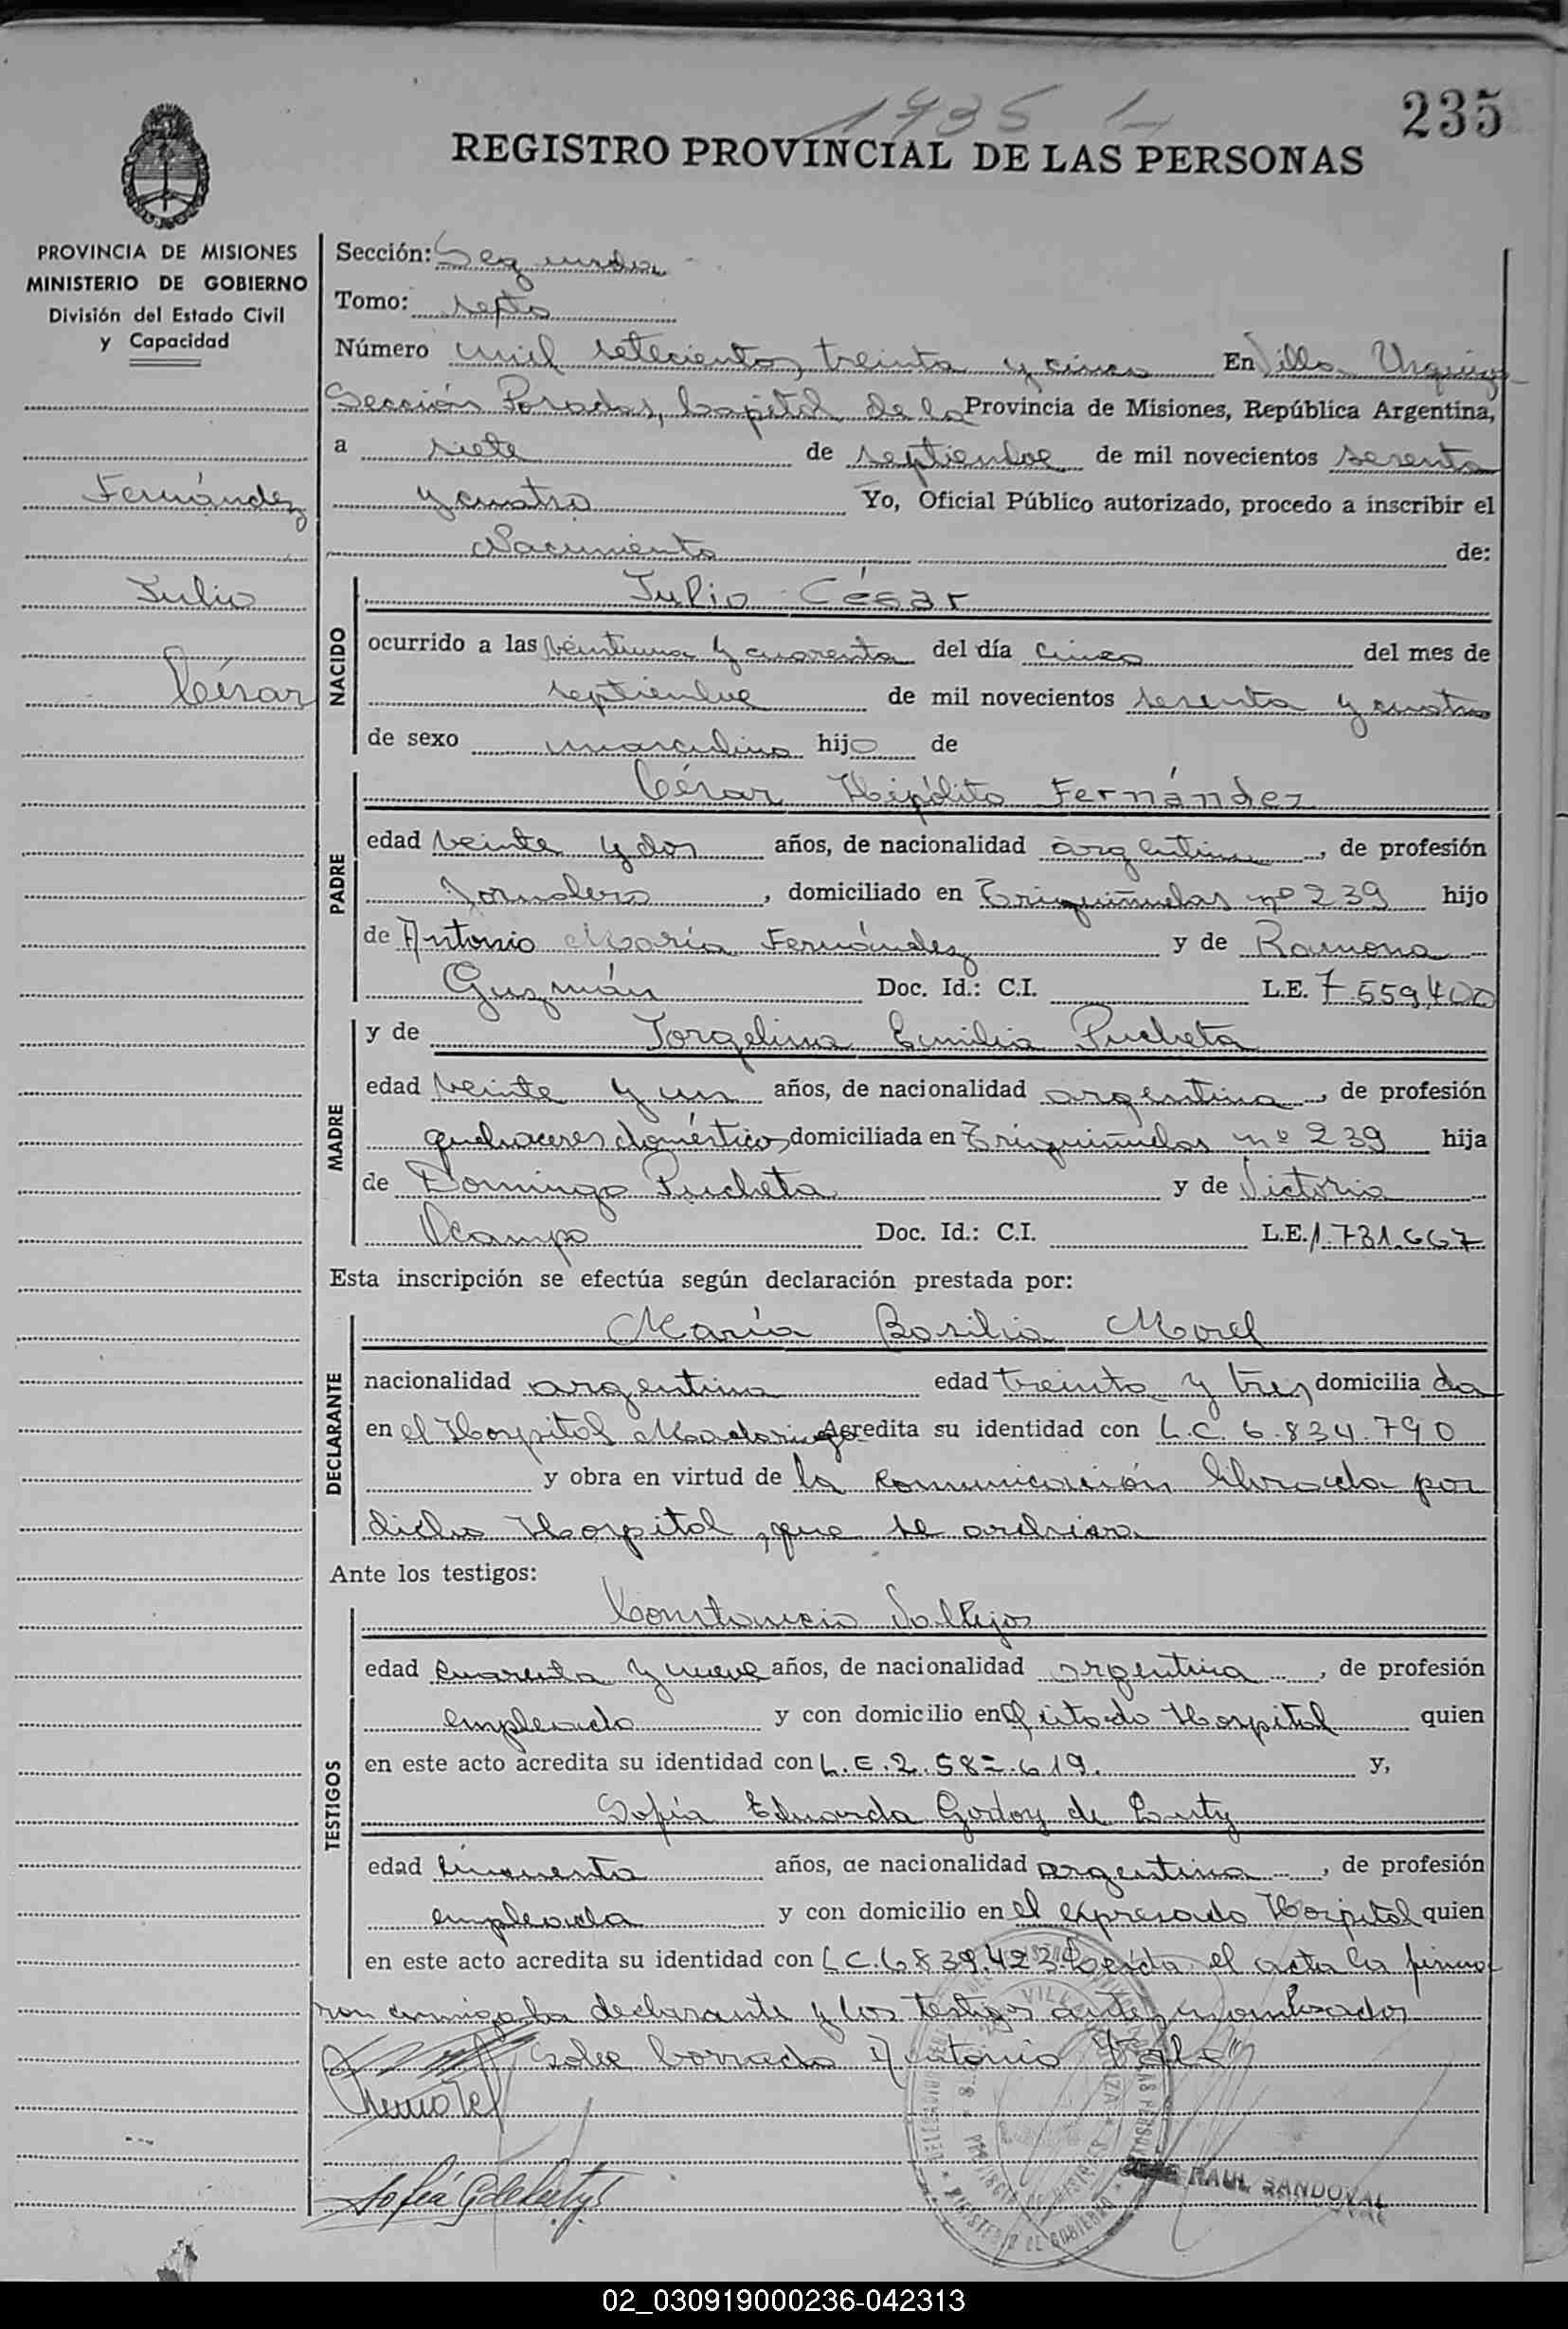 1735
235
REGISTRO PROVINCIAL DE LAS PERSONAS
PROVINCIA DE MISIONES
MINISTERIO DE GOBIERNO
División del Estado Civil
y Capacidad
Fernández
Julio
César
Sección: Segunda
Tomo: septo
Número mil setecientos treinta y cinco En Villa Urquiza
Sección Posadas, Capital de la Provincia de Misiones, República Argentina,
a siete de septiembre de mil novecientos sesenta
y cuatro Yo, Oficial Público autorizado, procedo a inscribir el
Nacimiento de:
NACIDO
Julio César
ocurrido a las veintiuna y cuarenta del día cinco del mes de
septiembre de mil novecientos sesenta y cuatro
de sexo masculino hijo de
PADRE
César Hipólito Fernández
edad veinte y dos años, de nacionalidad argentina, de profesión
Jornalero, domiciliado en Triquiñuelas nº 239 hijo
de Antonio María Fernández y de Ramona
Guzmán Doc. Id.: C.I. L.E. 7.559.400
MADRE
y de Jorgelina Emilia Pucheta
edad veinte y un años, de nacionalidad argentina, de profesión
quehaceres domésticos domiciliada en Triquiñuelas nº 239 hija
de Domingo Pucheta y de Victoria
Ocampo Doc. Id.: C.I. L.E. 1.731.667
Esta inscripción se efectúa según declaración prestada por:
DECLARANTE
María Basilia Morel
nacionalidad argentina edad treinta y tres domiciliada
en el Hospital Madariaga Acredita su identidad con L.C. 6.834.790
y obra en virtud de la comunicación librada por
dicho Hospital, que se archiva
Ante los testigos:
TESTIGOS
Constancio Vallejos
edad cuarenta y nueve años, de nacionalidad argentina, de profesión
empleado y con domicilio en el citado Hospital quien
en este acto acredita su identidad con L.E. 2.58 .619. y,
Sofía Eduarda Godoy de
edad cincuenta años, de nacionalidad argentina, de profesión
empleada y con domicilio en el expresado Hospital quien
en este acto acredita su identidad con L.C. 6.839.423. Leída el acta la firma
ron conmigo la declarante y los testigos ante nombrados
Sobre borrado Antonio "Vale"
RAUL SANDOVAL
02_030919000236-042313